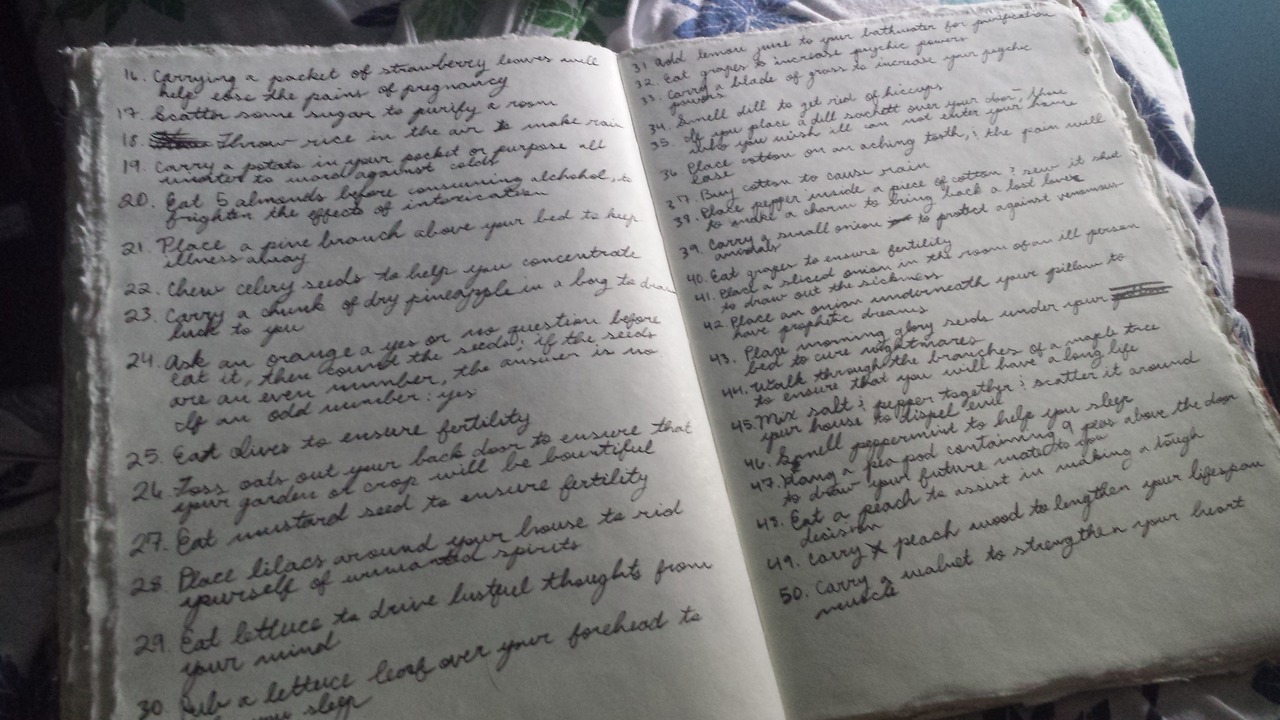 16. Carrying a packet of strawberry leaves will
help ease the pains of pregnancy
17. Scatter some sugar to purify a room
18. Throw rice in the air to make rain
19. Carry a potato in your pocket or purpose all
winter to ward against colds
20. Eat 5 almonds before consuming alchohol, to
frighten the effects of intoxication
21. Place a pine branch above your bed to keep
illness away
22. Chew celery seeds to help you concentrate
23. Carry a chunk of dry pineapple in a bag to draw
luck to you
24. Ask an orange a yes or no question before
eat it, then count the seeds: if the seeds
are an even number, the answer is no
If an odd number: yes
25. Eat olives to ensure fertility
26. Toss oats out your back door to ensure that
your garden or crop will be bountiful
27. Eat mustard seed to ensure fertility
28. Place lilacs around your house to rid
yourself of unwanted spirits
29. Eat lettuce to drive lustful thoughts from
your mind
30. Rub a lettuce leaf over your forehead to
you sleep
31. Add lemon juice to your bathwater for purification
32. Eat grapes to increase psychic powers
33. Carry a blade of grass to increase your psychic
powers
34. Smell dill to get rid of hiccups
35. If you place a dill sachett over your door those
who you wish ill can not enter your home
36 Place cotton on an aching tooth, & the pain will
ease
37. Buy cotton to cause rain
38. Place pepper inside a piece of cotton & sew it shut
to make a charm to bring back a lost love
39. Carry a small onion to protect against venomous
animals
40. Eat grapes to ensure fertility
41. Place a sliced onion in the room of an ill person
to draw out the sickness
42. Place an onion underneath your pillow to
have prophetic dreams
43. Place morning glory seeds under your
bed to cure nightmares
44. Walk through the branches of a maple tree
to ensure that you will have a long life
45. Mix salt & pepper together & scatter it around
your house to dispel evil
46. Smell peppermint to help you sleep
47. Hang a pea pod containing 9 peas above the door
to draw your future mate to you
48. Eat a peach to assist in making a tough
decision
49. Carry peach wood to lengthen your lifespan
50. Carry a walnut to strengthen your heart
muscle